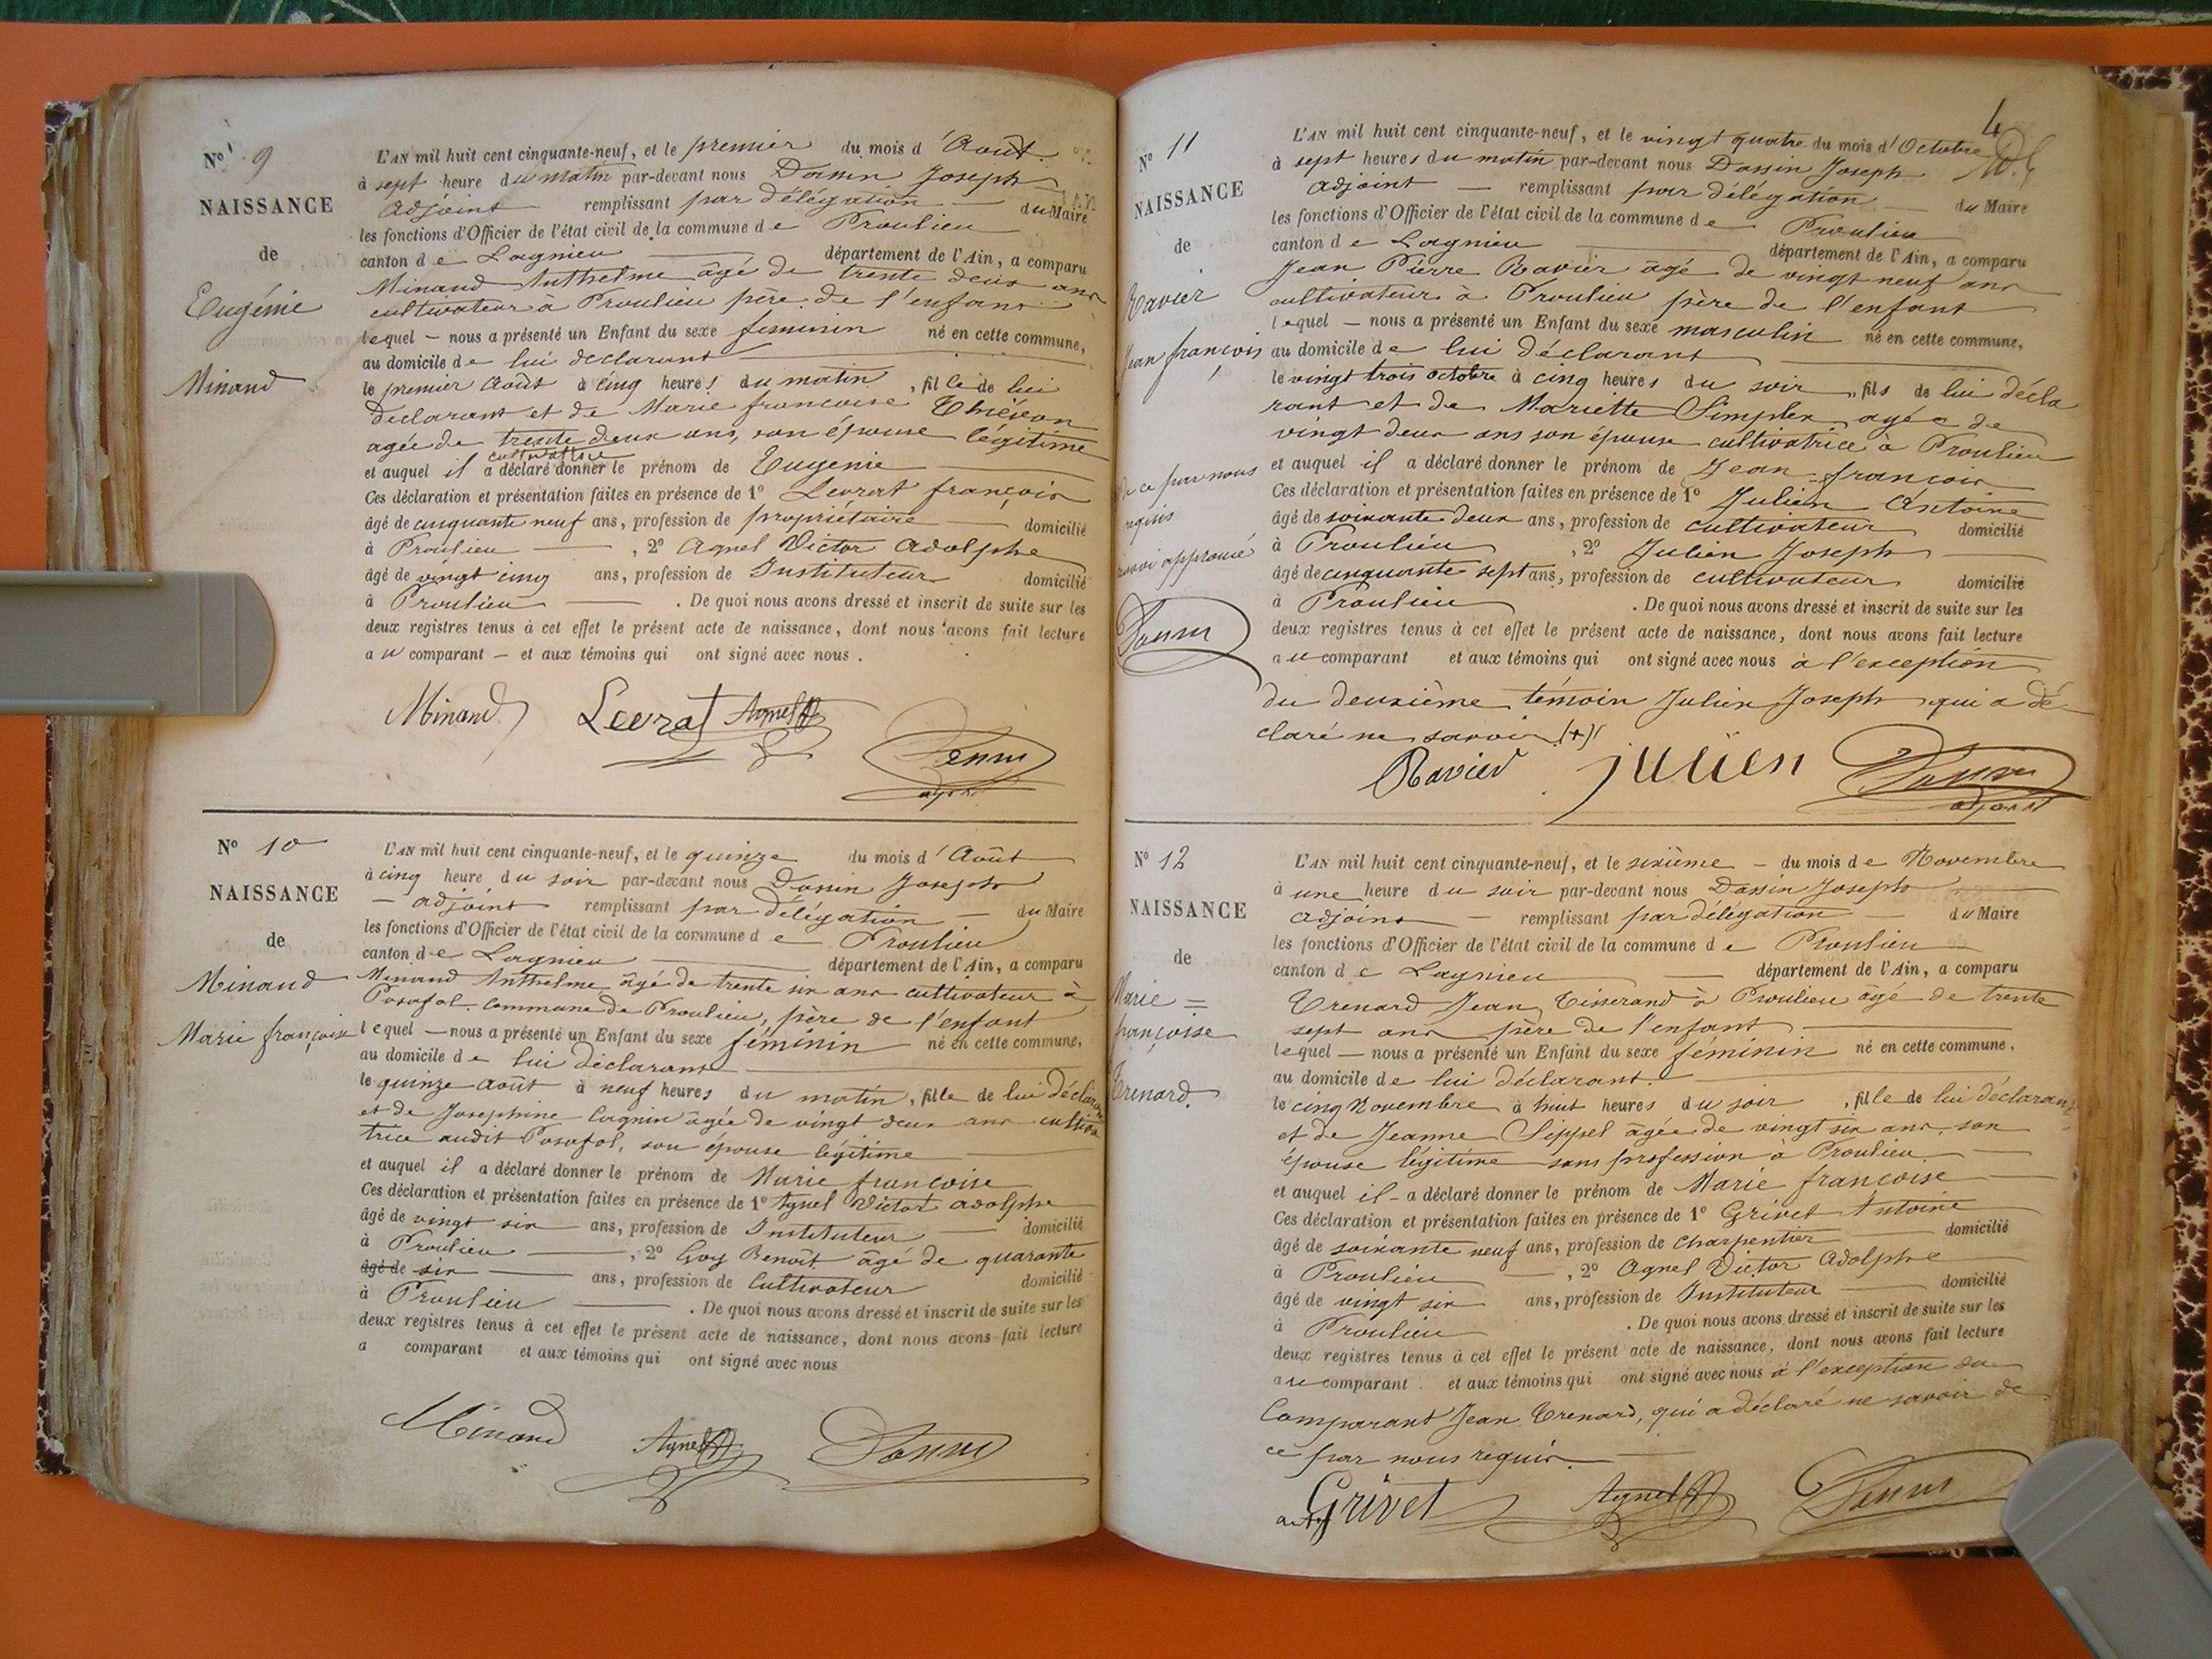 N° 9
NAISSANCE
de
Eugénie
Minand
L'AN mil huit cent cinquante-neuf, et le premier du mois d'Août
à sept heure du matin par-devant nous Dassin Joseph
adjoint remplissant par délégation du Maire
les fonctions d'Officier de l'état civil de la commune de Proulieu
canton de Lagnieu département de l'Ain, a comparu
Minand Anthelme âgé de trente deux ans
cultivateur à Proulieu père de l'enfant
lequel - nous a présenté un Enfant du sexe féminin né en cette commune,
au domicile de lui déclarant
le premier Août à cinq heures du matin, fille de lui
déclarant et de Marie françoise
agée de trente deux ans, son épouse légitime
cultivatrice
et auquel il a déclaré donner le prénom de Eugenie
Ces déclaration et présentation faites en présence de 1° Levrat françois
âgé de cinquante neuf ans, profession de propriétaire domicilié
à Proulieu, 2° Agnel Victor Adolphe
âgé de vingt cinq ans, profession de Instituteur domicilié
à Proulieu. De quoi nous avons dressé et inscrit de suite sur les
deux registres tenus à cet effet le présent acte de naissance, dont nous avons fait lecture
au comparant - et aux témoins qui ont signé avec nous.
Minand Levrat Agnel
adjoint
N° 10
NAISSANCE
de
Minand
Marie françoise
L'AN mil huit cent cinquante-neuf, et le quinze du mois d'Août
à cinq heure du soir par-devant nous Dassin Joseph
- adjoint remplissant par délégation - du Maire
les fonctions d'Officier de l'état civil de la commune de Proulieu
canton de Lagnieu département de l'Ain, a comparu
Minand Anthelme âgé de trente six ans cultivateur à
Posafol commune de Proulieu, père de l'enfant
lequel - nous a présenté un Enfant du sexe féminin né en cette commune,
au domicile de lui déclarant
le quinze août à neuf heures du matin, fille de lui déclarant
et de Josephine Cagnin âgée de vingt deux ans cultiva
trice audit Posafol, son épouse légitime
et auquel il a déclaré donner le prénom de Marie françoise
Ces déclaration et présentation faites en présence de 1° Agnel Victor adolphe
âgé de vingt six ans, profession de Instituteur domicilié
à Proulieu, 2° Goy Benoit âgé de quarante
âgé de six ans, profession de Cultivateur domicilié
à Proulieu. De quoi nous avons dressé et inscrit de suite sur les
deux registres tenus à cet effet le présent acte de naissance, dont nous avons fait lecture
a comparant et aux témoins qui ont signé avec nous
Minand Agnel Dassin
4
N° 11
NAISSANCE
de
Ravier
Jean françois
L'AN mil huit cent cinquante-neuf, et le vingt quatre du mois d'Octobre
à sept heures du matin par-devant nous Dassin Joseph
adjoint - remplissant par délégation - du Maire
les fonctions d'Officier de l'état civil de la commune de Proulieu
canton de Lagnieu département de l'Ain, a comparu
Jean Pierre Ravier âgé de vingt neuf ans
cultivateur à Proulieu père de l'enfant
lequel - nous a présenté un Enfant du sexe masculin né en cette commune,
au domicile de lui déclarant
le vingt trois octobre à cinq heures du soir, fils de lui décla
rant et de Mariette Simplex agée de
vingt deux ans son épouse cultivatrice à Proulieu
et auquel il a déclaré donner le prénom de Jean-françois
Ces déclaration et présentation faites en présence de 1° Julien Antoine
âgé de soixante deux ans, profession de cultivateur domicilié
à Proulieu, 2° Julien Joseph
âgé de cinquante sept ans, profession de cultivateur domicilié
à Proulieu. De quoi nous avons dressé et inscrit de suite sur les
deux registres tenus à cet effet le présent acte de naissance, dont nous avons fait lecture
au comparant et aux témoins qui ont signé avec nous à l'exception
du deuxième témoin Julien Joseph qui a dé
claré ne savoir (+)
de ce par nous
requis
renvoi approuvé
Dassin
Ravier juuien Dassin
adjoint
N° 12
NAISSANCE
de
Marie =
françoise
Trenard.
L'AN mil huit cent cinquante-neuf, et le sixième - du mois de Novembre
à une heure du soir par-devant nous Dassin Joseph
adjoint - remplissant par délégation - du Maire
les fonctions d'Officier de l'état civil de la commune de Proulieu
canton de Lagnieu - département de l'Ain, a comparu
Trenard Jean, Tisserand à Proulieu âgé de trente
sept ans père de l'enfant
lequel - nous a présenté un Enfant du sexe féminin né en cette commune,
au domicile de lui déclarant.
le cinq Novembre à huit heures du soir, fille de lui déclarant
et de Jeanne Sippel âgée de vingt six ans, son
épouse légitime sans profession à Proulieu
et auquel il - a déclaré donner le prénom de Marie françoise
Ces déclaration et présentation faites en présence de 1° Grivet Antoine
âgé de soixante neuf ans, profession de charpentier domicilié
à Proulieu -, 2° Agnel Victor Adolphe
âgé de vingt six ans, profession de Instituteur domicilié
à Proulieu. De quoi nous avons dressé et inscrit de suite sur les
deux registres tenus à cet effet le présent acte de naissance, dont nous avons fait lecture
au comparant. et aux témoins qui ont signé avec nous à l'exception du
Comparant Jean Trenard, qui a déclaré ne savoir de
ce par nous requis.
Grivet Agnel Dassin